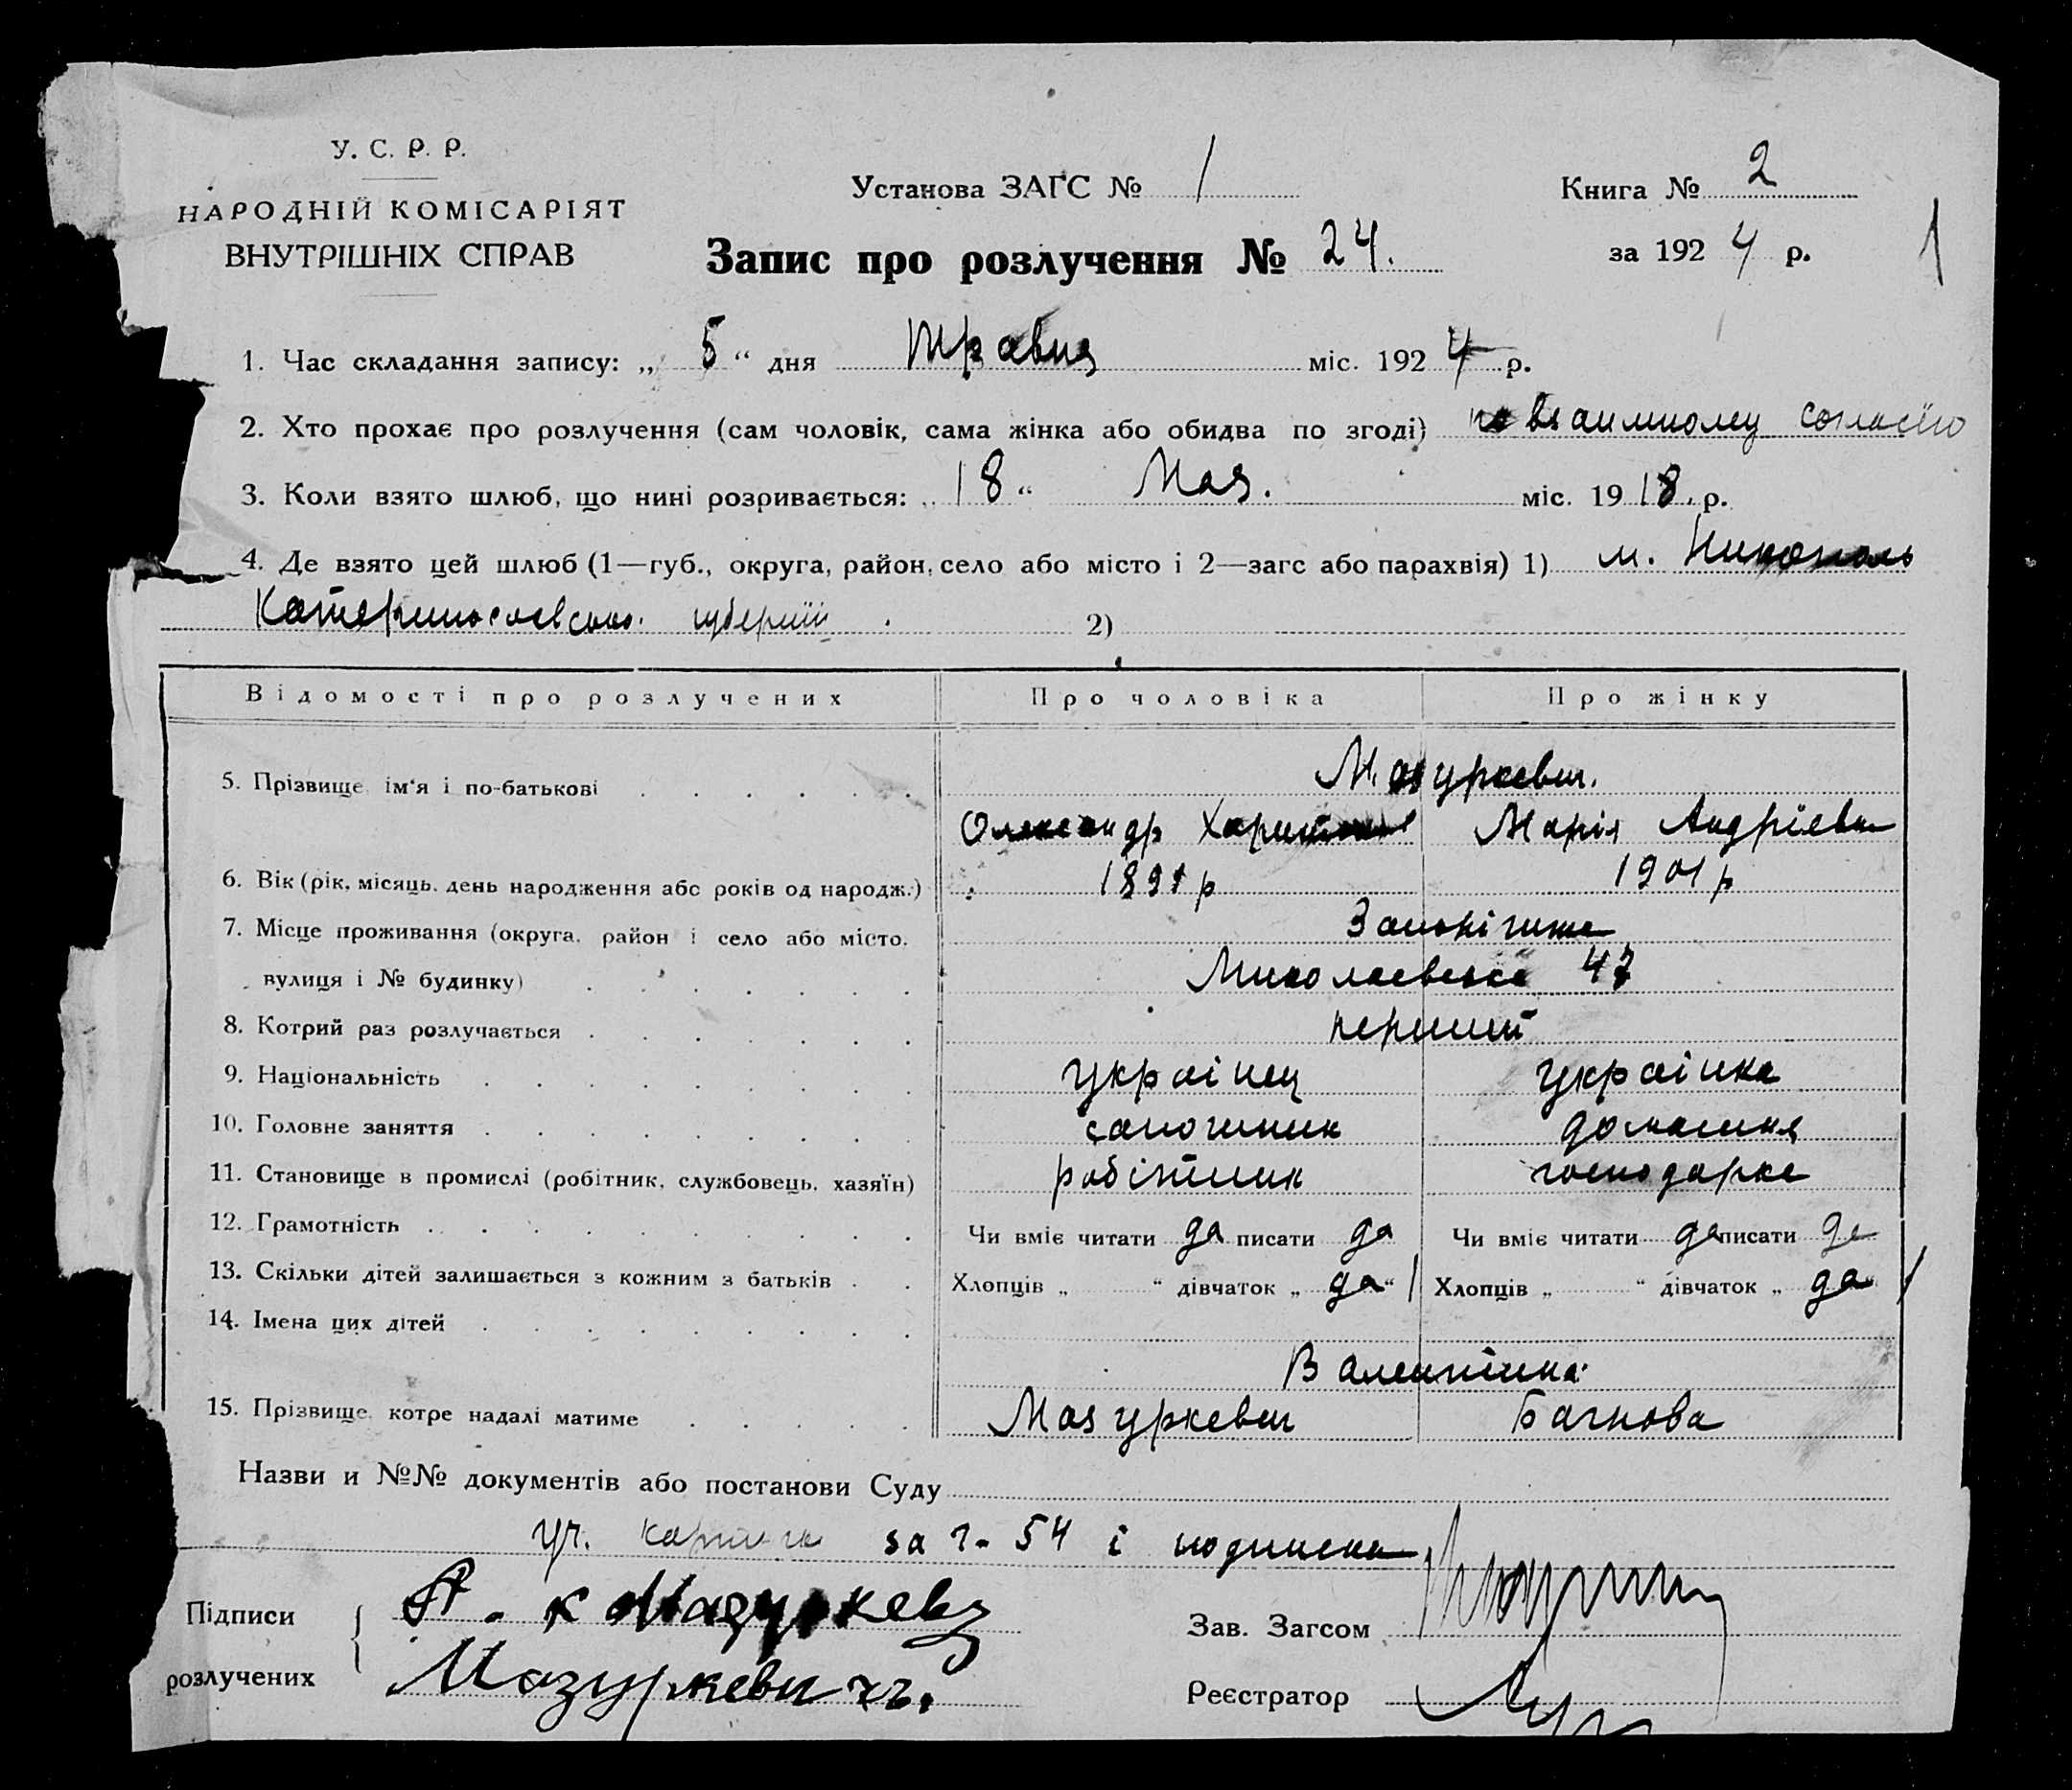 У. С. Р. Р.
НАРОДНІЙ КОМІСАРІЯТ
ВНУТРІШНІХ СПРАВ
Установа ЗАГС № 1
Книга № 2
Запис про розлучення № 24.
за 1924 р.
1
1. Час складання запису: „ 5 “ дня травня міс. 1924 р.
2. Хто прохає про розлучення (сам чоловік, сама жінка або обидва по згоді) по взаимному согласію
3. Коли взято шлюб, що нині розривається: „ 18 “ Мая. міс. 1918. р.
4. Де взято цей шлюб (1—губ., округа, район, село або місто і 2—загс або парахвія) 1) м. Никополь
Катеринославсько. губернії 2)
Відомості про розлучених Про чоловіка Про жінку
5. Прізвище, ім'я і по-батькові Мазуркевич.
Олександр Марія Андріевна
6. Вік (рік, місяць, день народження або років од народж.) 1891 р 1901 р
7. Місце проживання (округа, район і село або місто, Запоріжжа
вулиця і № будинку) Миколаевська 47
8. Котрий раз розлучається перший
9. Національність українец українка
10. Головне заняття сапожник домашня
11. Становище в промислі (робітник, службовець, хазяїн) робітник господарка
12. Грамотність Чи вміє читати да писати да Чи вміє читати да писати да
13. Скільки дітей залишається з кожним з батьків Хлопців „ “ дівчаток „ да “ 1 Хлопців „ “ дівчаток „ да “ 1
14. Імена цих дітей
Валентина
15. Прізвище, котре надалі матиме Мазуркевич Багнова
Назви и №№ документів або постанови Суду
уч. за г- 54 і подписка
Підписи
розлучених
Мазуркевичъ.
Зав. Загсом
Реєстратор